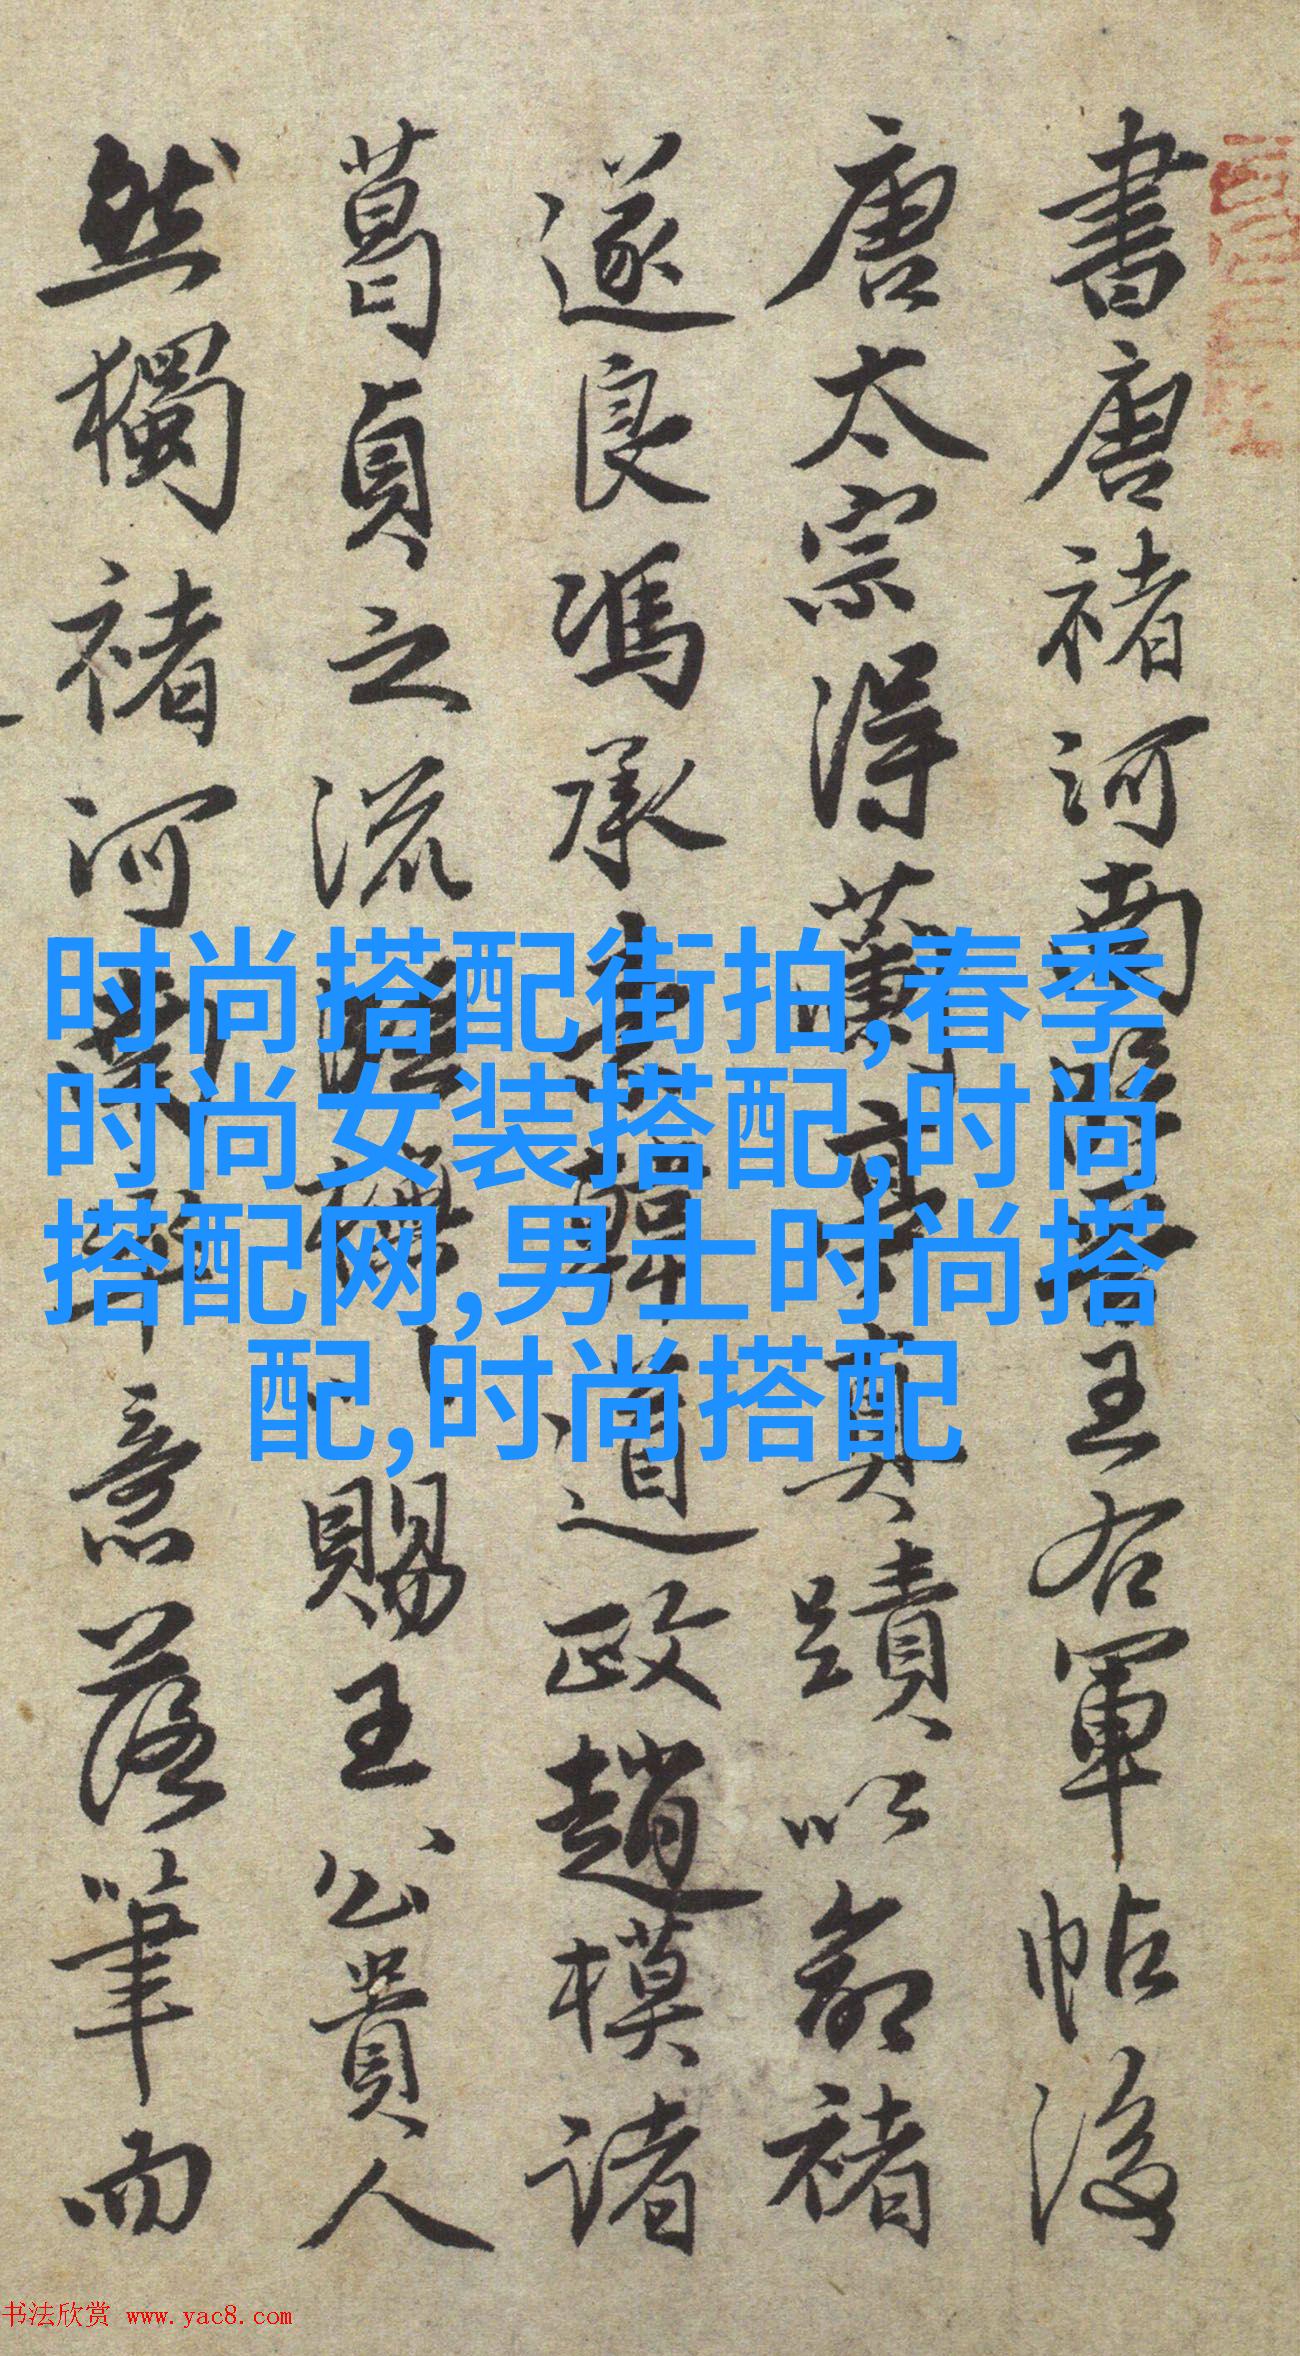 書唐褚河南臨晉王右軍帖後
唐太宗得蘭亭真蹟以命褚
遂良馮承素韓道政趙模諸
葛貞之流賜王公貴人
然獨褚河意落筆而
时尚搭配街拍,春季
时尚女装搭配,时尚
搭配网,男士时尚搭
配,时尚搭配
书法欣赏 www.yac8.com